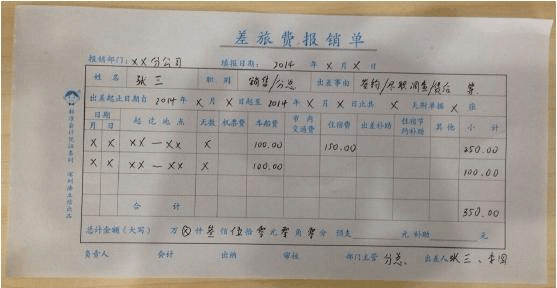 差旅费报销单
报销部门: XX分公司 填报日期: 2014 年 X 月 X 日
姓名 张三 职别 销售/分总 出差事由 签约/尽职调查/贷后 等
出差起止日期自 2014 年 X 月 X 日起至 2014 年 X 月 X 日止共 X 天附单据 X 张
日期 起讫地点 天数 机票费 车船费 市内交通费 住宿费 出差补助 住宿节约补助 其他 小计
月 日
X X XX—XX X 100.00 150.00 250.00
X X XX—XX X 100.00 100.00
合计 350.00
总计金额(大写) 万 ⊗ 仟 叁 佰 伍 拾 零 元 零 角 零 分 预支 元 补助 元
负责人 会计 出纳 审核 部门主管 分总 出差人 张三、李四